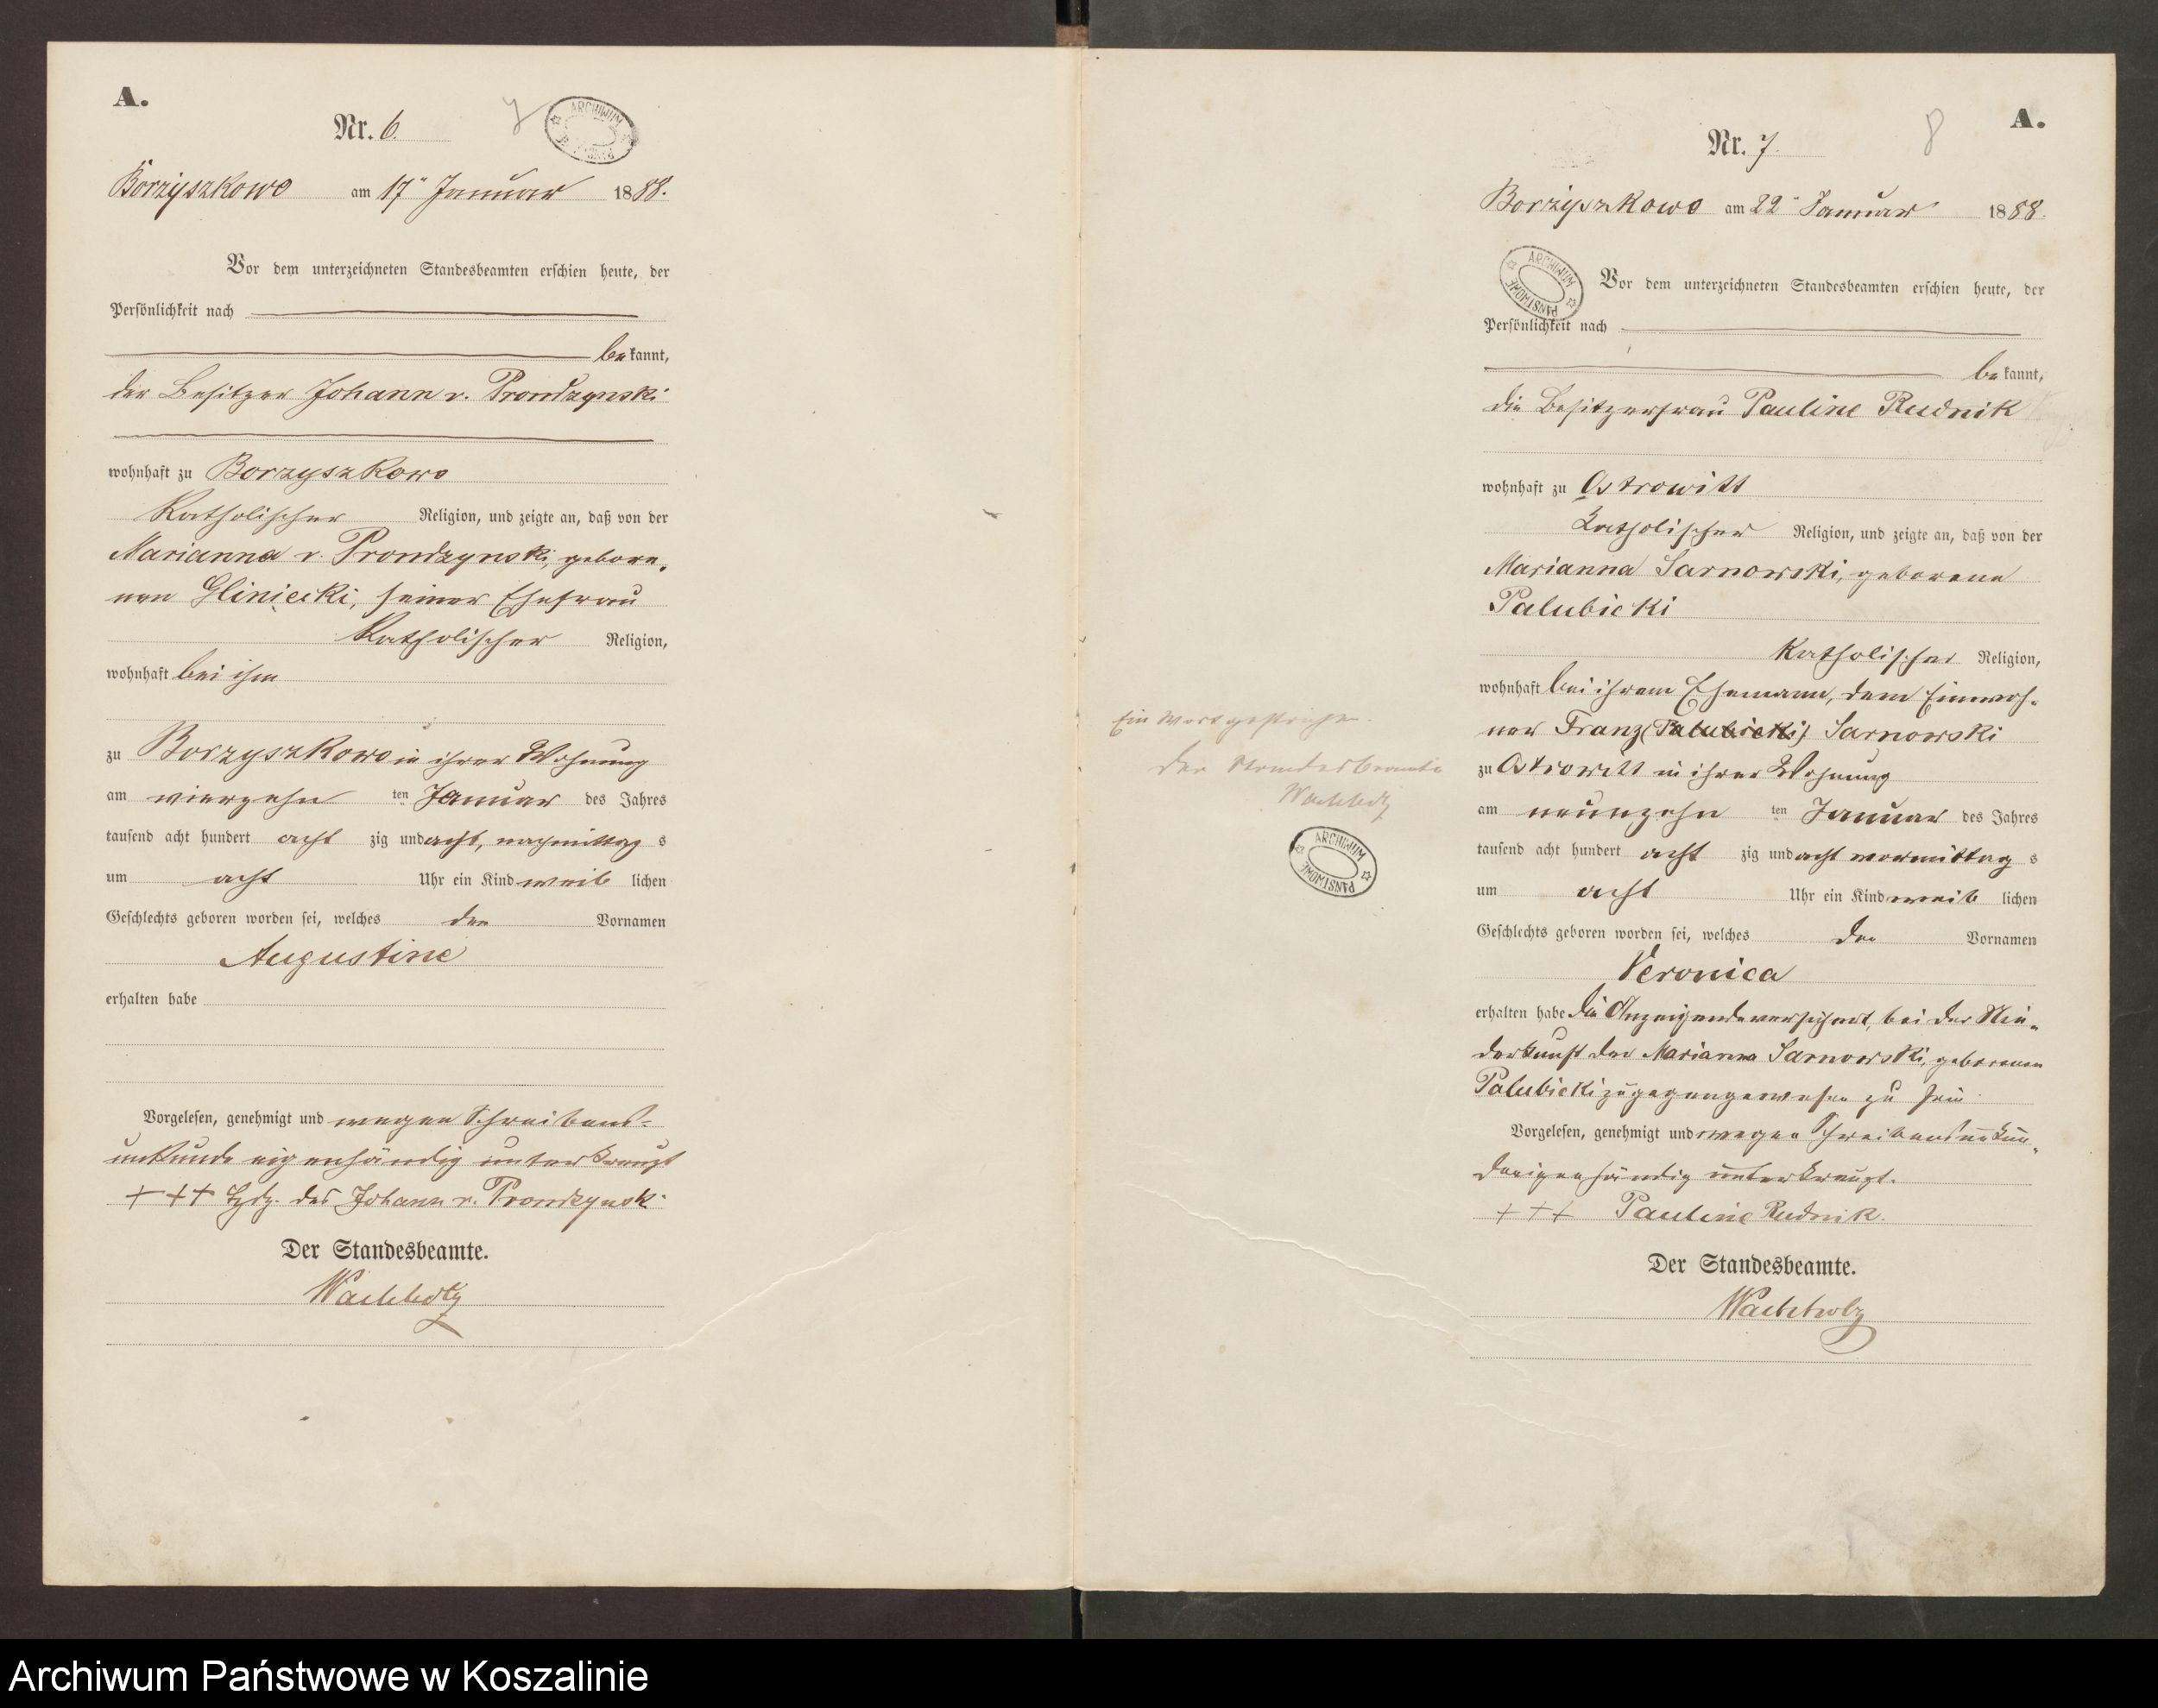 A.
Nr. 6.
7
ARCHIWUM
Borzyszkowo am 17ᵗ Januar 1888.
Vor dem unterzeichneten Standesbeamten erschien heute, der
Persönlichkeit nach
bekannt,
der Besitzer Johann v. Prondzynski
wohnhaft zu Borzyszkowo
Katholischer Religion, und zeigte an, daß von der
Marianna v. Prondzynski, gebore„
nen Gliniecki, seiner Ehefrau
Katholischer Religion,
wohnhaft bei ihm
zu Borzyszkowo in ihrer Wohnung
am vierzehn ten Januar des Jahres
tausend acht hundert acht zig und acht, nachmittag s
um acht Uhr ein Kind weib lichen
Geschlechts geboren worden sei, welches den Vornamen
Augustine
erhalten habe
Vorgelesen, genehmigt und wegen Schreibens-
unkunde eigenhändig unterkreuzt
+++ Hdz. des Johann v. Prondzynski
Der Standesbeamte.
Wachholtz
A.
Nr. 7.
8
Borzyszkowo am 22ᵗ Januar 1888.
ARCHIWUM PAŃSTWOWE
Vor dem unterzeichneten Standesbeamten erschien heute, der
Persönlichkeit nach
bekannt,
die Besitzerfrau Pauline Rudnik
wohnhaft zu Ostrowitt
Katholischer Religion, und zeigte an, daß von der
Marianna Sarnowski, geborene
Palubicki
Katholischer Religion,
wohnhaft bei ihrem Ehemann, dem Einwoh-
ner Franz (Palubicki) Sarnowski
zu Ostrowitt in ihrer Wohnung
am neunzehn ten Januar des Jahres
tausend acht hundert acht zig und acht vormittag s
um acht Uhr ein Kind weib lichen
Geschlechts geboren worden sei, welches den Vornamen
Veronica
erhalten habe Die Anzeigende versichert, bei der Nie„
derkunft der Marianna Sarnowski, geborenen
Palubicki zugegen gewesen zu sein
Vorgelesen, genehmigt und wegen Schreibensunkun„
de eigenhändig unterkreuzt.
+++ Pauline Rudnik.
Der Standesbeamte.
Wachholz
Ein Wort gestrichen.
Der Standesbeamte
Wachholtz
ARCHIWUM PAŃSTWOWE
Archiwum Państwowe w Koszalinie